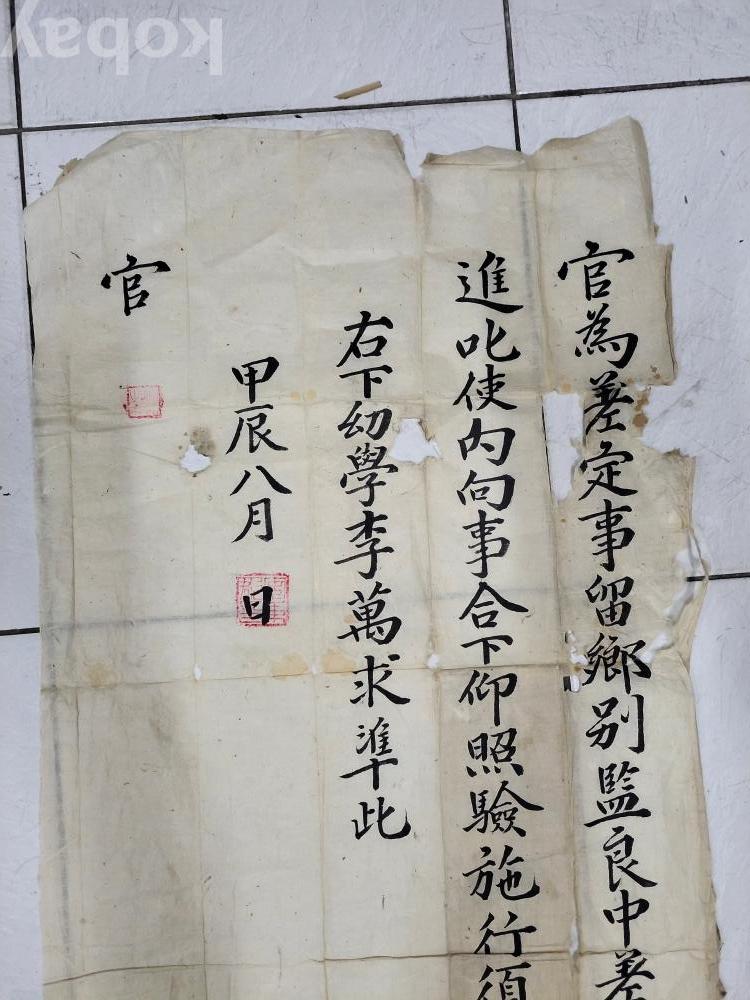 官為差定事留鄉別監良中差
進叱使內向事合下仰照驗施行須
右下幼學李萬求準此
甲辰八月 日
官
kobay